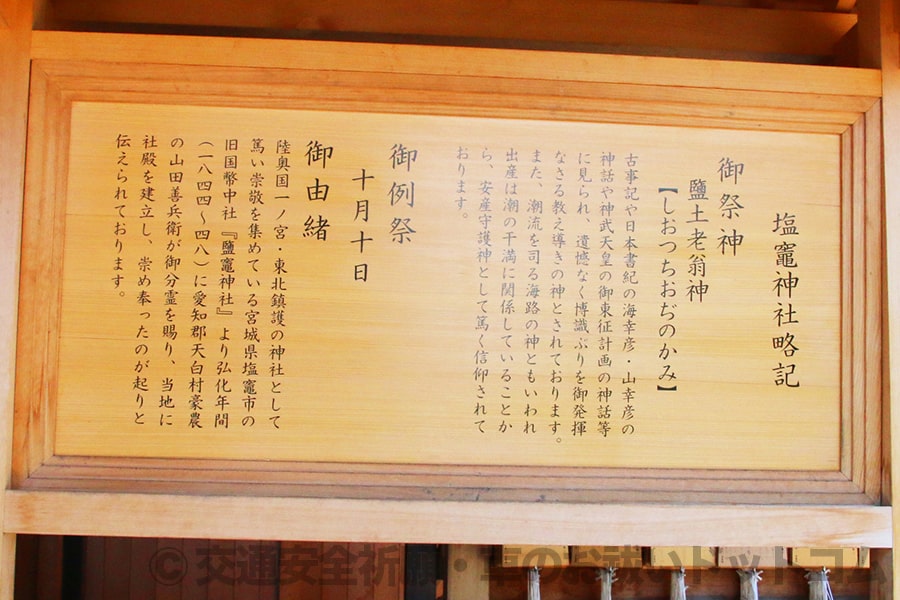 塩竈神社略記
御祭神
鹽土老翁神
【しおつちおぢのかみ】
古事記や日本書紀の海幸彦・山幸彦の
神話や神武天皇の御東征計画の神話等
に見られ、遺憾なく博識ぶりを御発揮
なさる教え導きの神とされております。
また、潮流を司る海路の神ともいわれ
出産は潮の干満に関係していることか
ら、安産守護神として篤く信仰されて
おります。
御例祭
十月十日
御由緒
陸奥国一ノ宮・東北鎮護の神社として
篤い崇敬を集めている宮城県塩竈市の
旧国幣中社『鹽竈神社』より弘化年間
(一八四四～四八)に愛知郡天白村豪農
の山田善兵衛が御分霊を賜り、当地に
社殿を建立し、崇め奉ったのが起りと
伝えられております。
© 交通安全祈願・車のお祓いドットコム